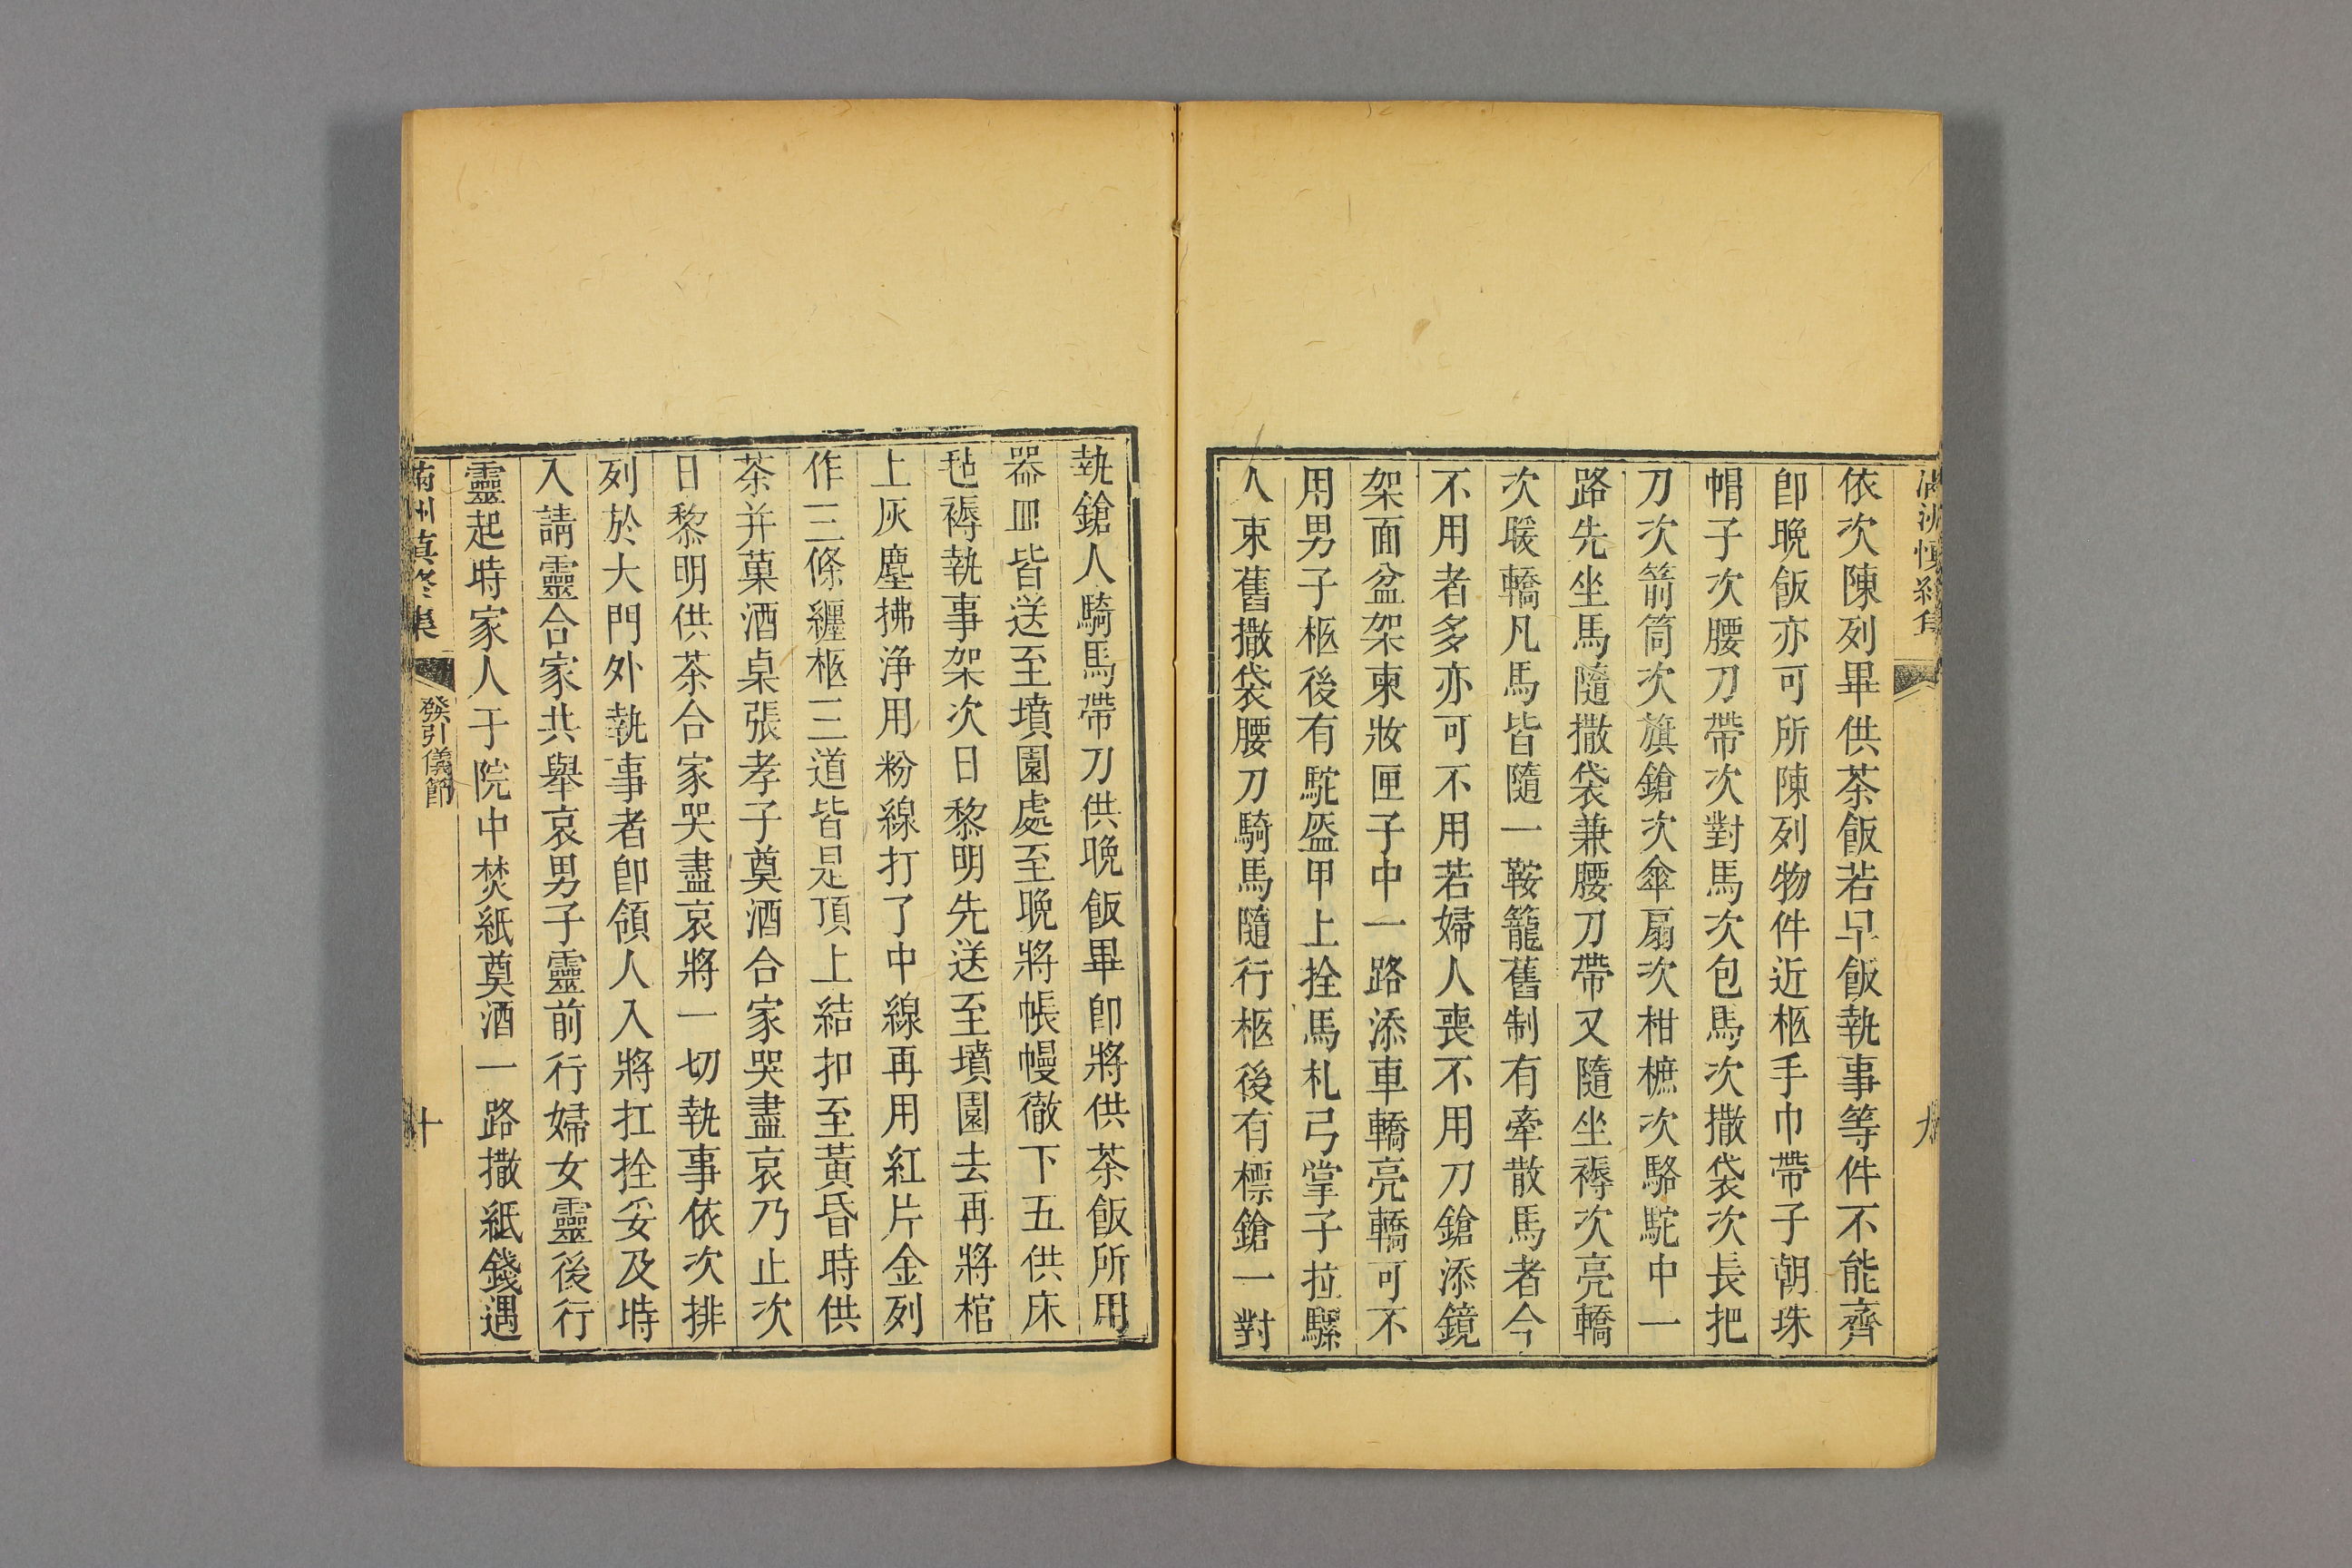 滿洲慎終集
九
依次陳列畢供茶飯若早飯執事等件不能齊
卽晚飯亦可所陳列物件近柩手巾帶子朝珠
帽子次腰刀帶次對馬次包馬次撒袋次長把
刀次箭筒次旗鎗次傘扇次柑樜次駱駝中一
路先坐馬隨撒袋兼腰刀帶又隨坐褥次亮轎
次暖轎凡馬皆隨一鞍籠舊制有牽散馬者今
不用者多亦可不用若婦人喪不用刀鎗添鏡
架面盆架東妝匣子中一路添車轎亮轎可不
用男子柩後有駝盔甲上拴馬札弓掌子拉騾
人束舊撒袋腰刀騎馬隨行柩後有標鎗一對
執鎗人騎馬帶刀供晚飯畢卽將供茶飯所用
器皿皆送至墳園處至晚將帳幔徹下五供床
毡褥執事架次日黎明先送至墳園去再將棺
上灰塵拂淨用粉線打了中線再用紅片金列
作三條纏柩三道皆是頂上結扣至黃昏時供
茶并菓酒桌張孝子奠酒合家哭盡哀乃止次
日黎明供茶合家哭盡哀將一切執事依次排
列於大門外執事者卽領人入將扛拴妥及時
入請靈合家共舉哀男子靈前行婦女靈後行
靈起時家人于院中焚紙奠酒一路撒紙錢遇
滿洲慎終集
發引儀節
十